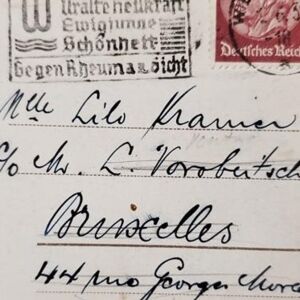 W Uralte Heilkraft
Ewigjunge
Schönheit
Gegen Rheuma u. Gicht
Deutsches Reich
Mlle Lilo Kramer
c/o Mr. L. Vorobeitsch
Bruxelles
44 rue Georges More